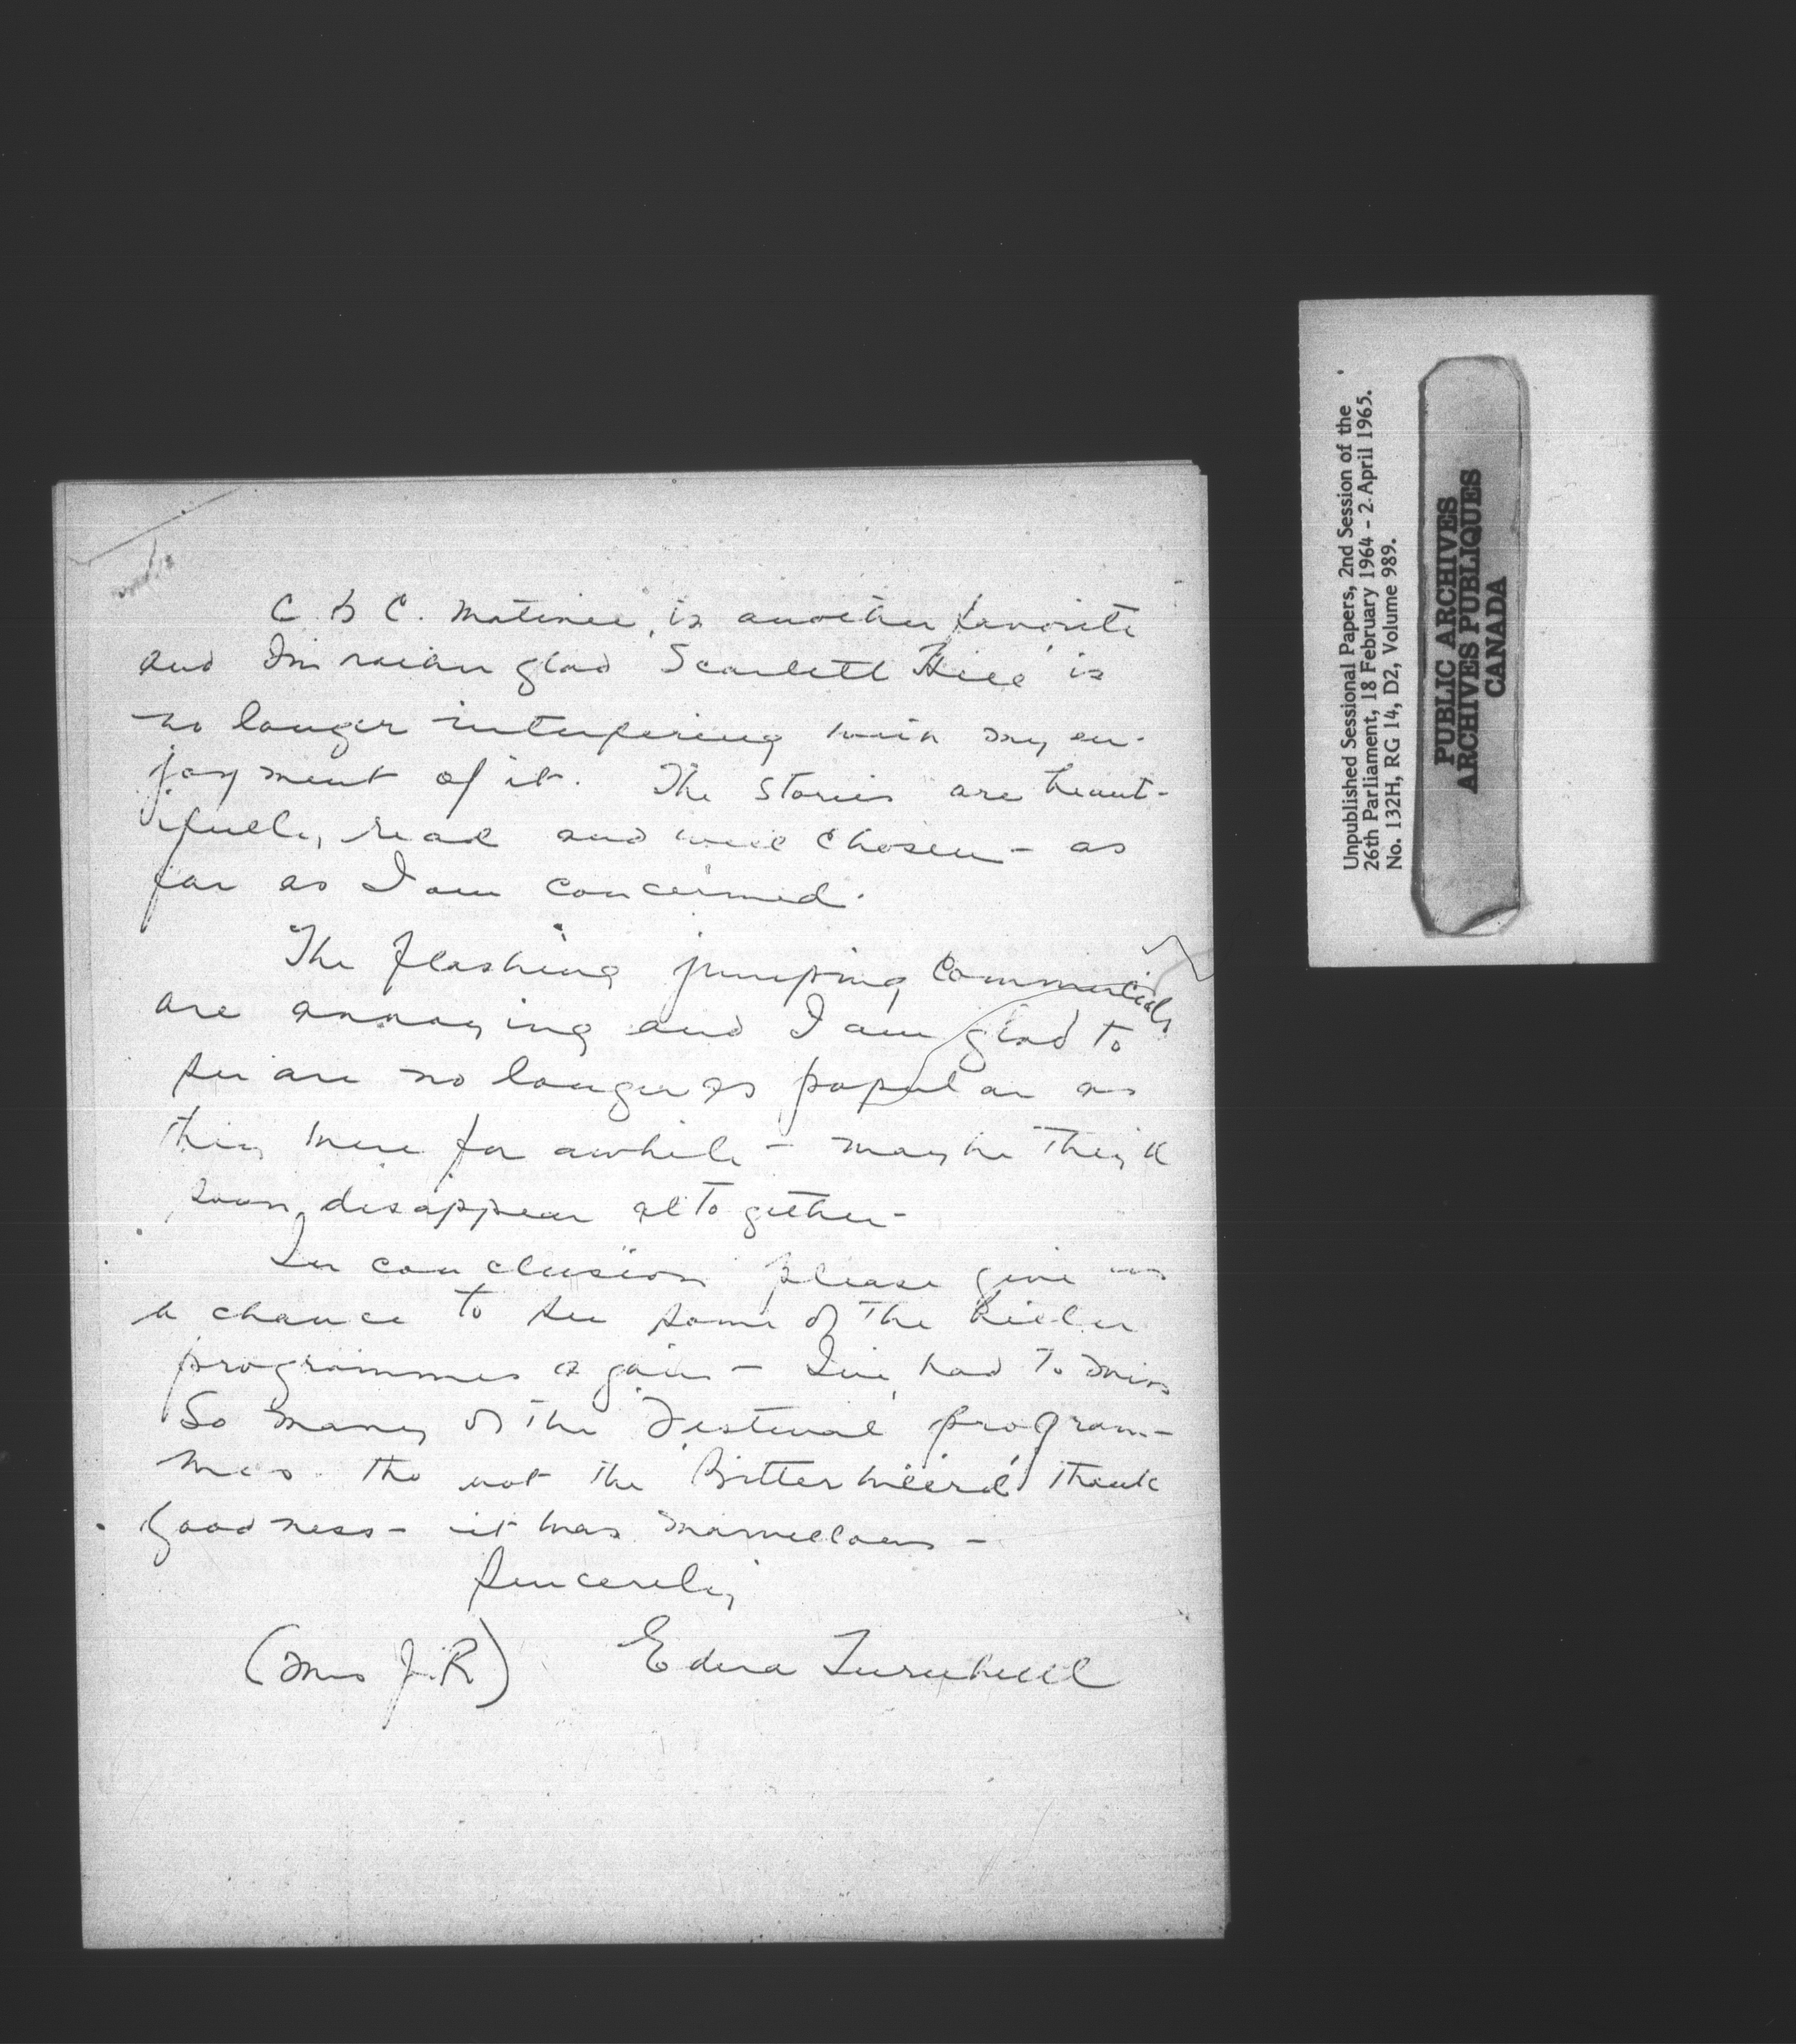 C B C. Matinee, is another favorite
and I'm rather glad 'Scarlett Hill' is
no longer interfering with my en-
joyment of it. The stories are beaut-
ifully read and well chosen - as
far as I am concerned.
The flashing jumping commercials
are annoying and I am glad to
see are no longer as popular as
they were for awhile - maybe they'll
soon disappear altogether -
In conclusion please give us
a chance to see some of the
programmes again - I've had to miss
so many of the 'Festival' program-
mes. tho not the thank
goodness - it was marvellous -
Sincerely
(Mrs J. R) Edna Turnbull
Unpublished Sessional Papers, 2nd Session of the
26th Parliament, 18 February 1964 - 2 April 1965.
No. 132H, RG 14, D2, Volume 989.
PUBLIC ARCHIVES
ARCHIVES PUBLIQUES
CANADA